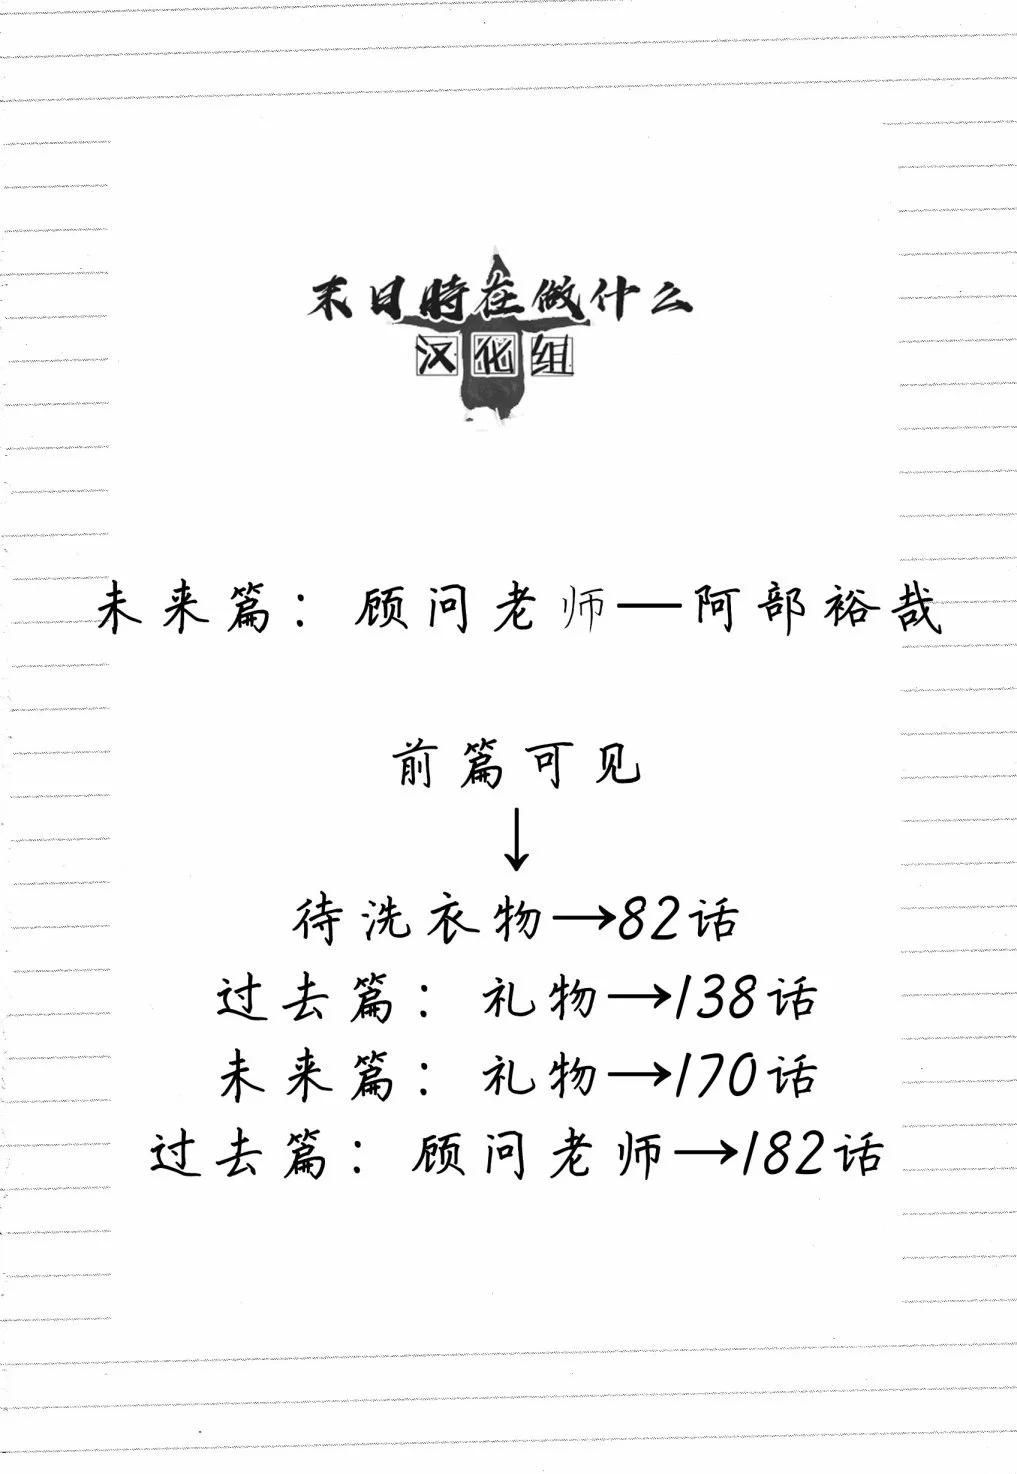 末日時在做什么
汉化组
未来篇：顾问老师—阿部裕哉
前篇可见
↓
待洗衣物→82话
过去篇：礼物→138话
未来篇：礼物→170话
过去篇：顾问老师→182话